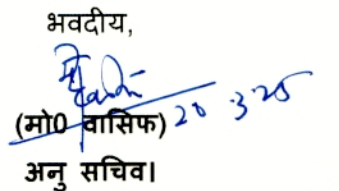 भवदीय,
20.3.25
(मो0 वासिफ)
अनु सचिव।